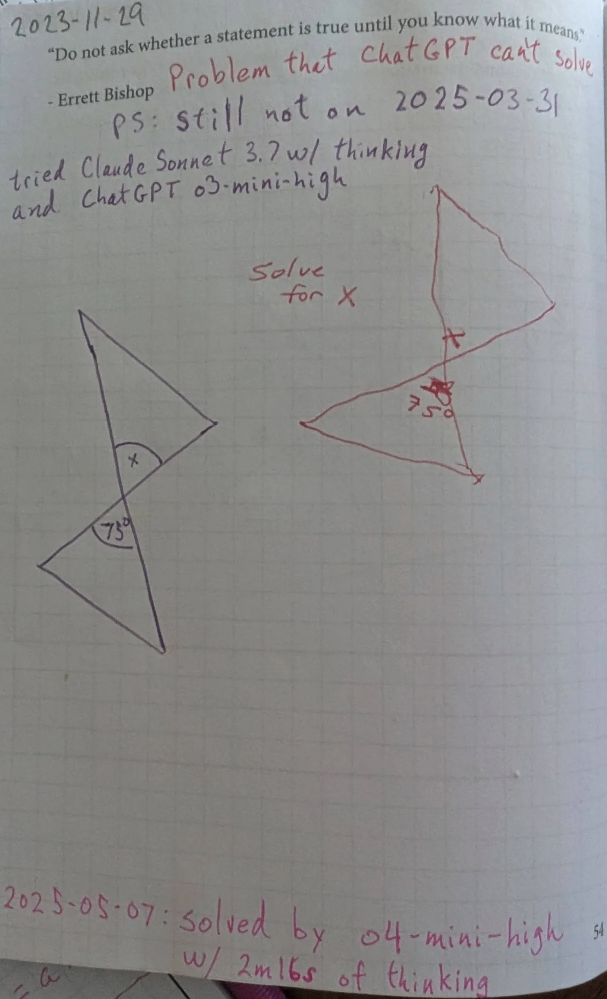 2023-11-29
"Do not ask whether a statement is true until you know what it means."
- Errett Bishop
Problem that ChatGPT can't solve
PS: still not on 2025-03-31
tried Claude Sonnet 3.7 w/ thinking
and ChatGPT o3-mini-high
Solve
for x
x
75°
x
75°
2025-05-07: solved by o4-mini-high
w/ 2m16s of thinking
54